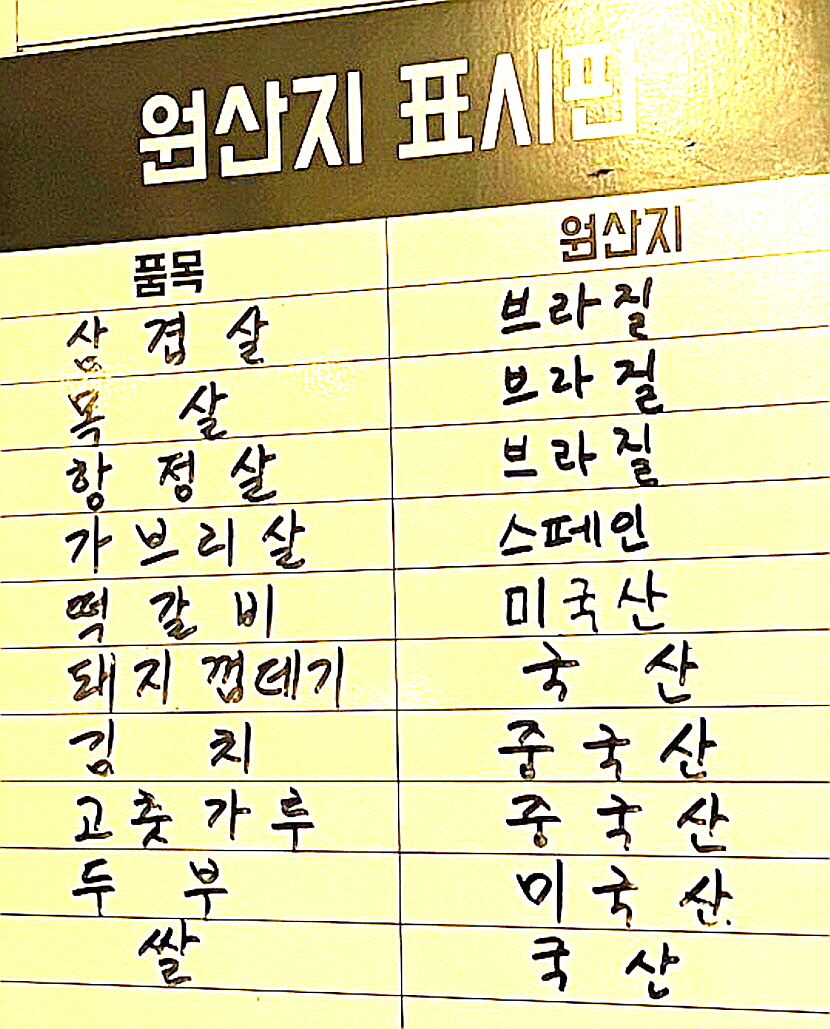 원산지 표시판
품목 원산지
삼겹살 브라질
목살 브라질
항정살 브라질
가브리살 스페인
떡갈비 미국산
돼지껍데기 국산
김치 중국산
고춧가루 중국산
두부 미국산
쌀 국산